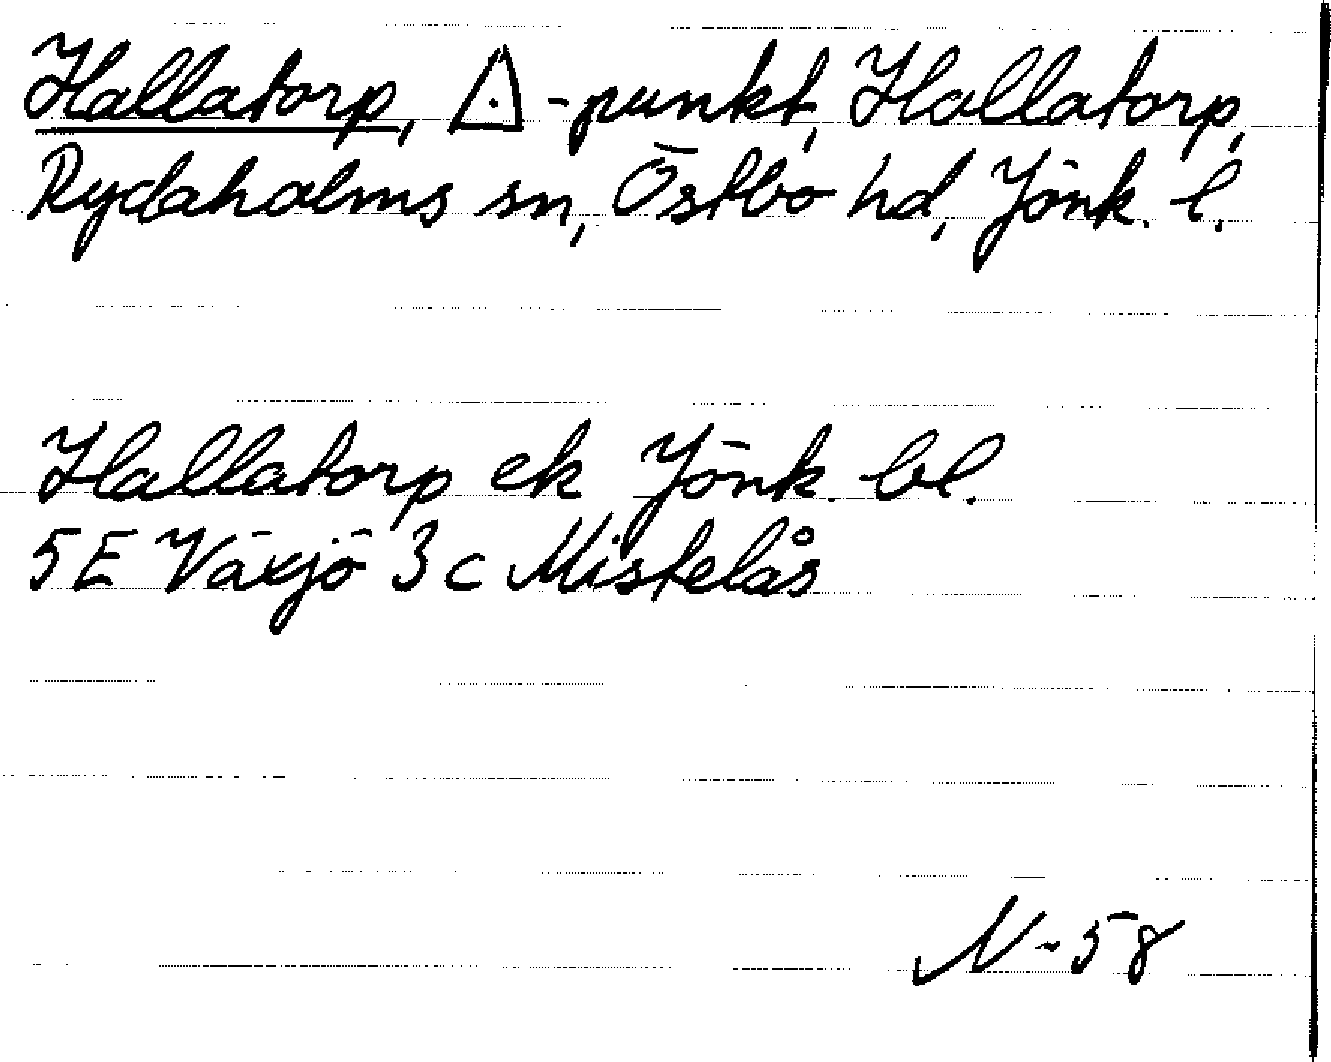 Hallatorp, △-punkt, Hallatorp,
Rydaholms sn, Östbo hd, Jönk. l.
Hallatorp ek Jönk. bl.
5E Växjö 3c Mistelås
N-58